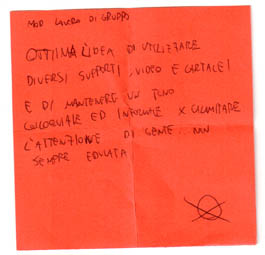 MOD LAVORO DI GRUPPO
OTTIMA L'IDEA DI UTILIZZARE
DIVERSI SUPPORTI, VIDEO E CARTACEI
E DI MANTENERE UN TONO
COLLOQUIALE ED INFORMALE X CALAMITARE
L'ATTENZIONE DI GENTE NON
SEMPRE EDUCATA